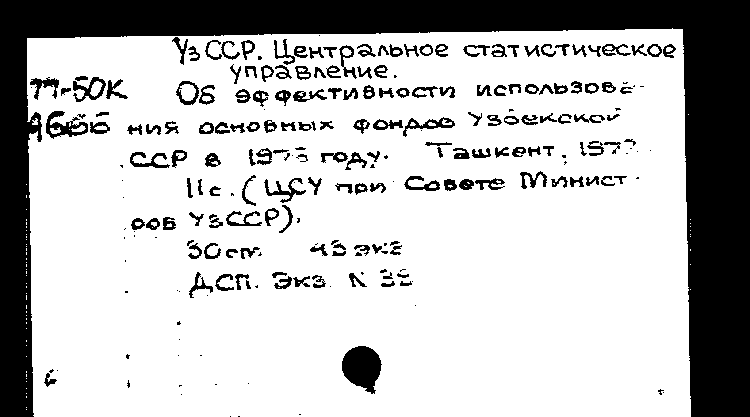 УзССР. Центральное статистическое
управление.
77-50К Об эффективности использова-
ния основных фондов Узбекской
ССР в году. Ташкент,
11с. (ЦСУ при Совете Минист-
ров УзССР).
30см 43 экз
ДСП. Экз. N